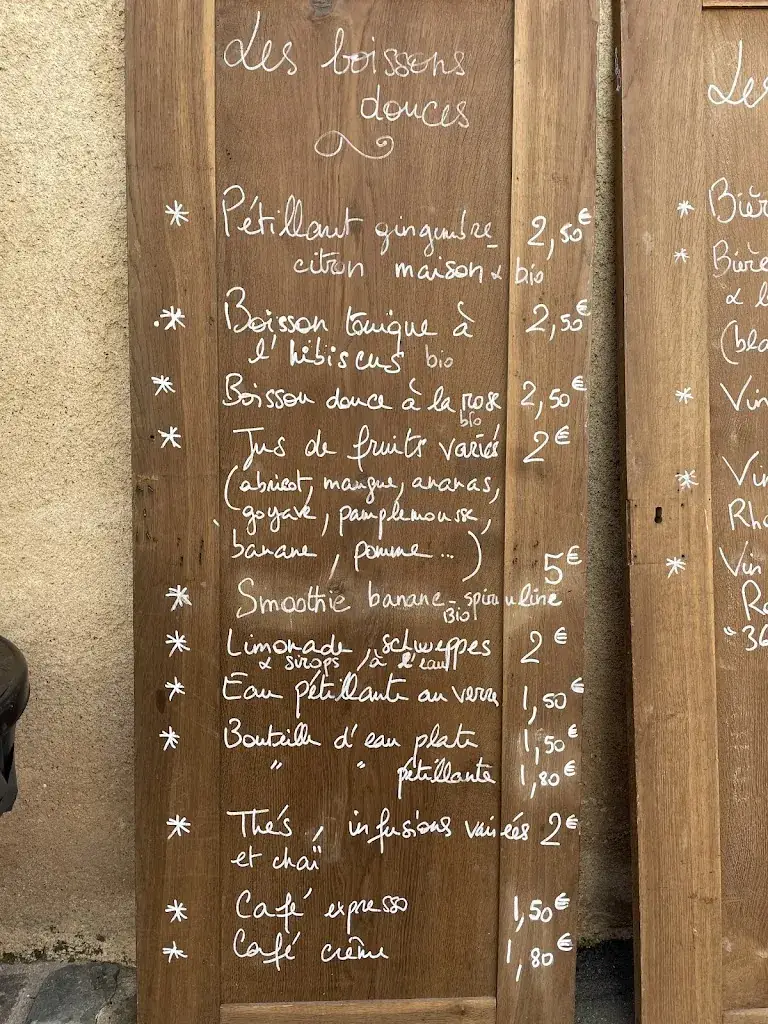 Les boissons
douces
* Pétillant gingembre 2,50€
citron maison & bio
* Boisson tonique à 2,50€
l'hibiscus bio
* Boisson douce à la rose 2,50€
bio
* Jus de fruits variés 2€
(abricot, mangue, ananas,
goyave, pamplemousse,
banane, pomme ...)
* Smoothie banane-spiruline 5€
Bio
* Limonade, schweppes 2€
& sirops à l'eau
* Eau pétillante au verre 1,50€
* Bouteille d'eau plate 1,50€
" " pétillante 1,80€
* Thés, infusions variées 2€
et chaï
* Café expresso 1,50€
* Café crème 1,80€
Les
* Bièr
* Bière
& l
(bla
* Vin
* Vin
Rho
* Vin
"36